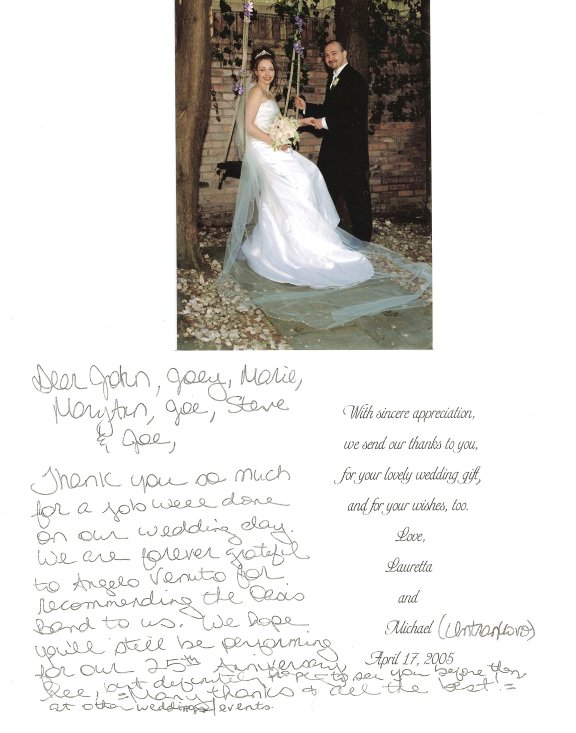 Dear John, Joey, Marie,
MaryAnn, Joe, Steve
& Joe,
Thank you so much
for a job well done
on our wedding day.
We are forever grateful
to Angelo Venuto for
recommending the
Band to us. We hope
you'll still be performing
for our 25th Anniversary
but definitely hope to see you before then
at other weddings/events.
=Many thanks & all the best!=
With sincere appreciation,
we send our thanks to you,
for your lovely wedding gift,
and for your wishes, too.
Love,
Lauretta
and
Michael
April 17, 2005